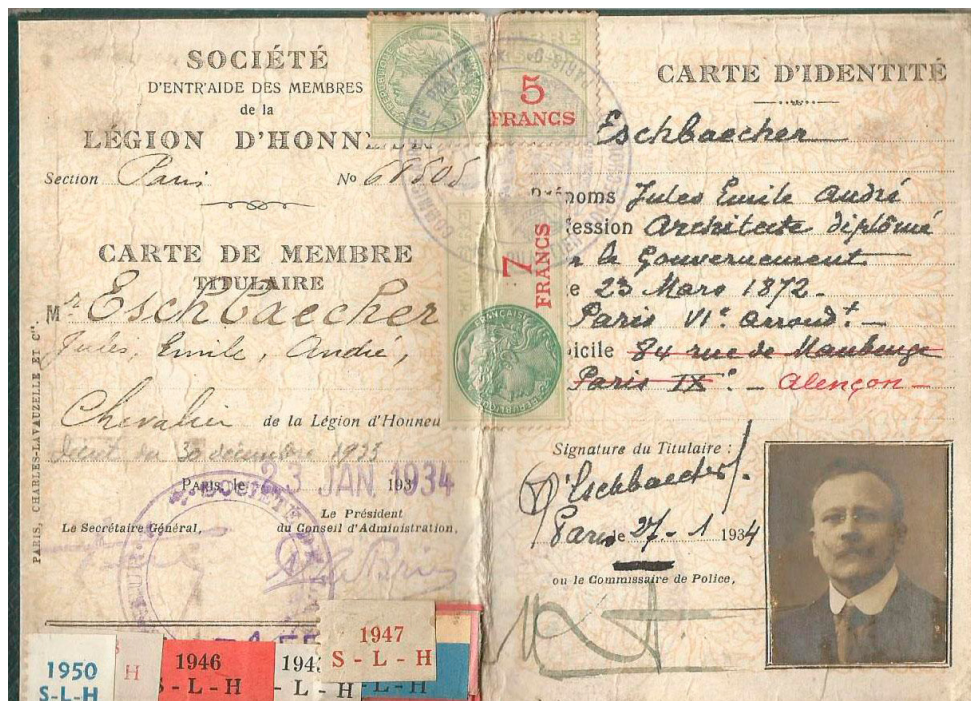 SOCIÉTÉ
D'ENTR'AIDE DES MEMBRES
de la
LÉGION D'HONN
Section Paris No 68505
CARTE DE MEMBRE
TITULAIRE
Mr Eschbaecher
Jules, Emile, André,
Chevalier de la Légion d'Honneu
décret du 30 décembre 1933
Paris, le 23 JAN 1934
Le Secrétaire Général,
Le Président
du Conseil d'Administration,
PARIS, CHARLES-LAVAUZELLE ET Cie.
1950
S-L-H
H
1946
S - L - H
194
- L - H
1947
S - L - H
- L - H
5
FRANCS
7
FRANCS
FRANÇAISE
CARTE D'IDENTITÉ
Eschbaecher
Prénoms Jules Emile André
fession Architecte diplômé
r le Gouvernement
e 23 Mars 1872.
Paris VIe arrondt
icile 84 rue de Maubeuge
Paris IXe. Alençon
Signature du Titulaire :
Eschbaecher
Paris le 27-1 1934
ou le Commissaire de Police,